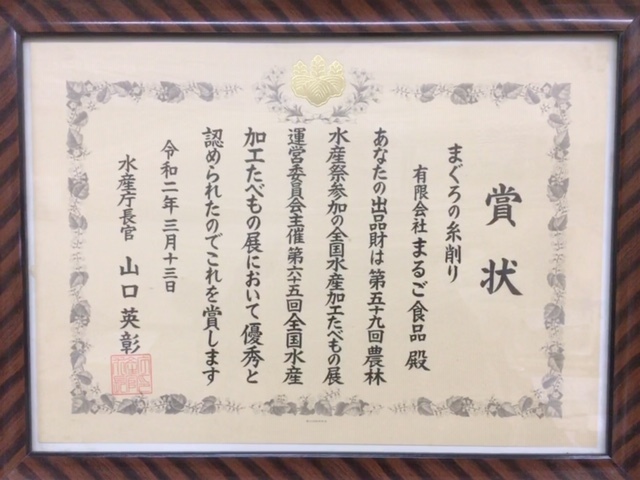 賞状
まぐろの糸削り
有限会社 まるご食品 殿
あなたの出品財は第五十九回農林
水産祭参加の全国水産加工たべもの展
運営委員会主催第六十五回全国水産
加工たべもの展において優秀と
認められたのでこれを賞します
令和二年三月十三日
水産庁長官 山口英彰